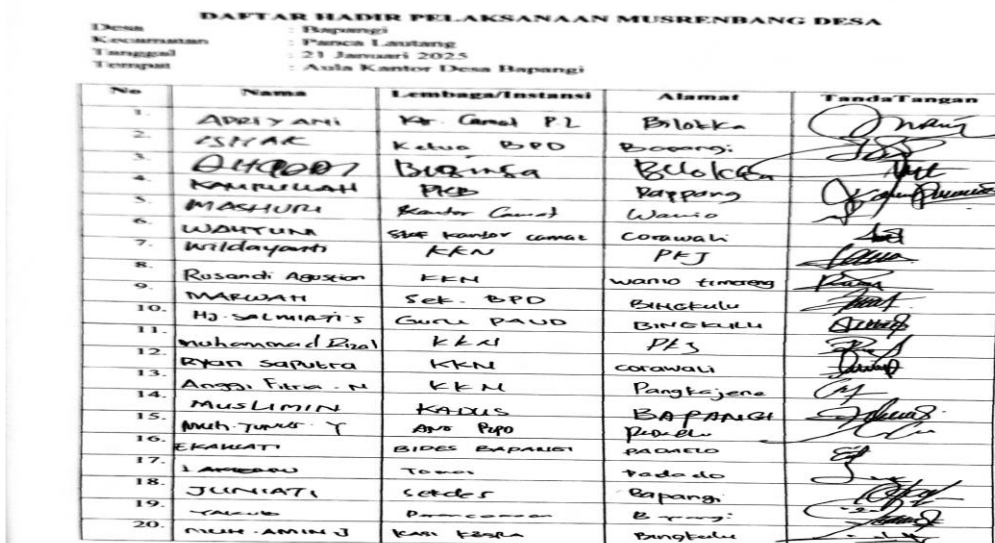 DAFTAR HADIR PELAKSANAAN MUSRENBANG DESA
Desa : Bapangi
Kecamatan : Panca Lautang
Tanggal : 21 Januari 2025
Tempat : Aula Kantor Desa Bapangi
No Nama Lembaga/Instansi Alamat TandaTangan
1. APRIYANI Ktr. Camat PL Bilokka
2. ISHAK Ketua BPD Bapangi
3. Babinsa Bilokka
4. KAMRULLAH PKB Rappang
5. MASHURI Kantor Camat Wanio
6. WAHYUNI Staf Kantor camat Corawali
7. Wildayanti KKN PKJ
8. Rusandi Agustian KKN wanio timoreng
9. MARWAH Sek. BPD BINGKULU
10. HJ. SALMIATI S Guru PAUD BINGKULU
11. muhammad Rizal KKN PKJ
12. Ryan Saputra KKN corawali
13. Anggi Fitria . N KKN Pangkajene
14. MUSLIMIN KADUS BAPANGI
15. Muh. Junus. Y
16. EKAWATI BIDES BAPANGI PADAELO
17. Tomas
18. JUNIATI Sekdes Bapangi
19.
20. MUH. AMIN J KASI KESRA Bingkulu